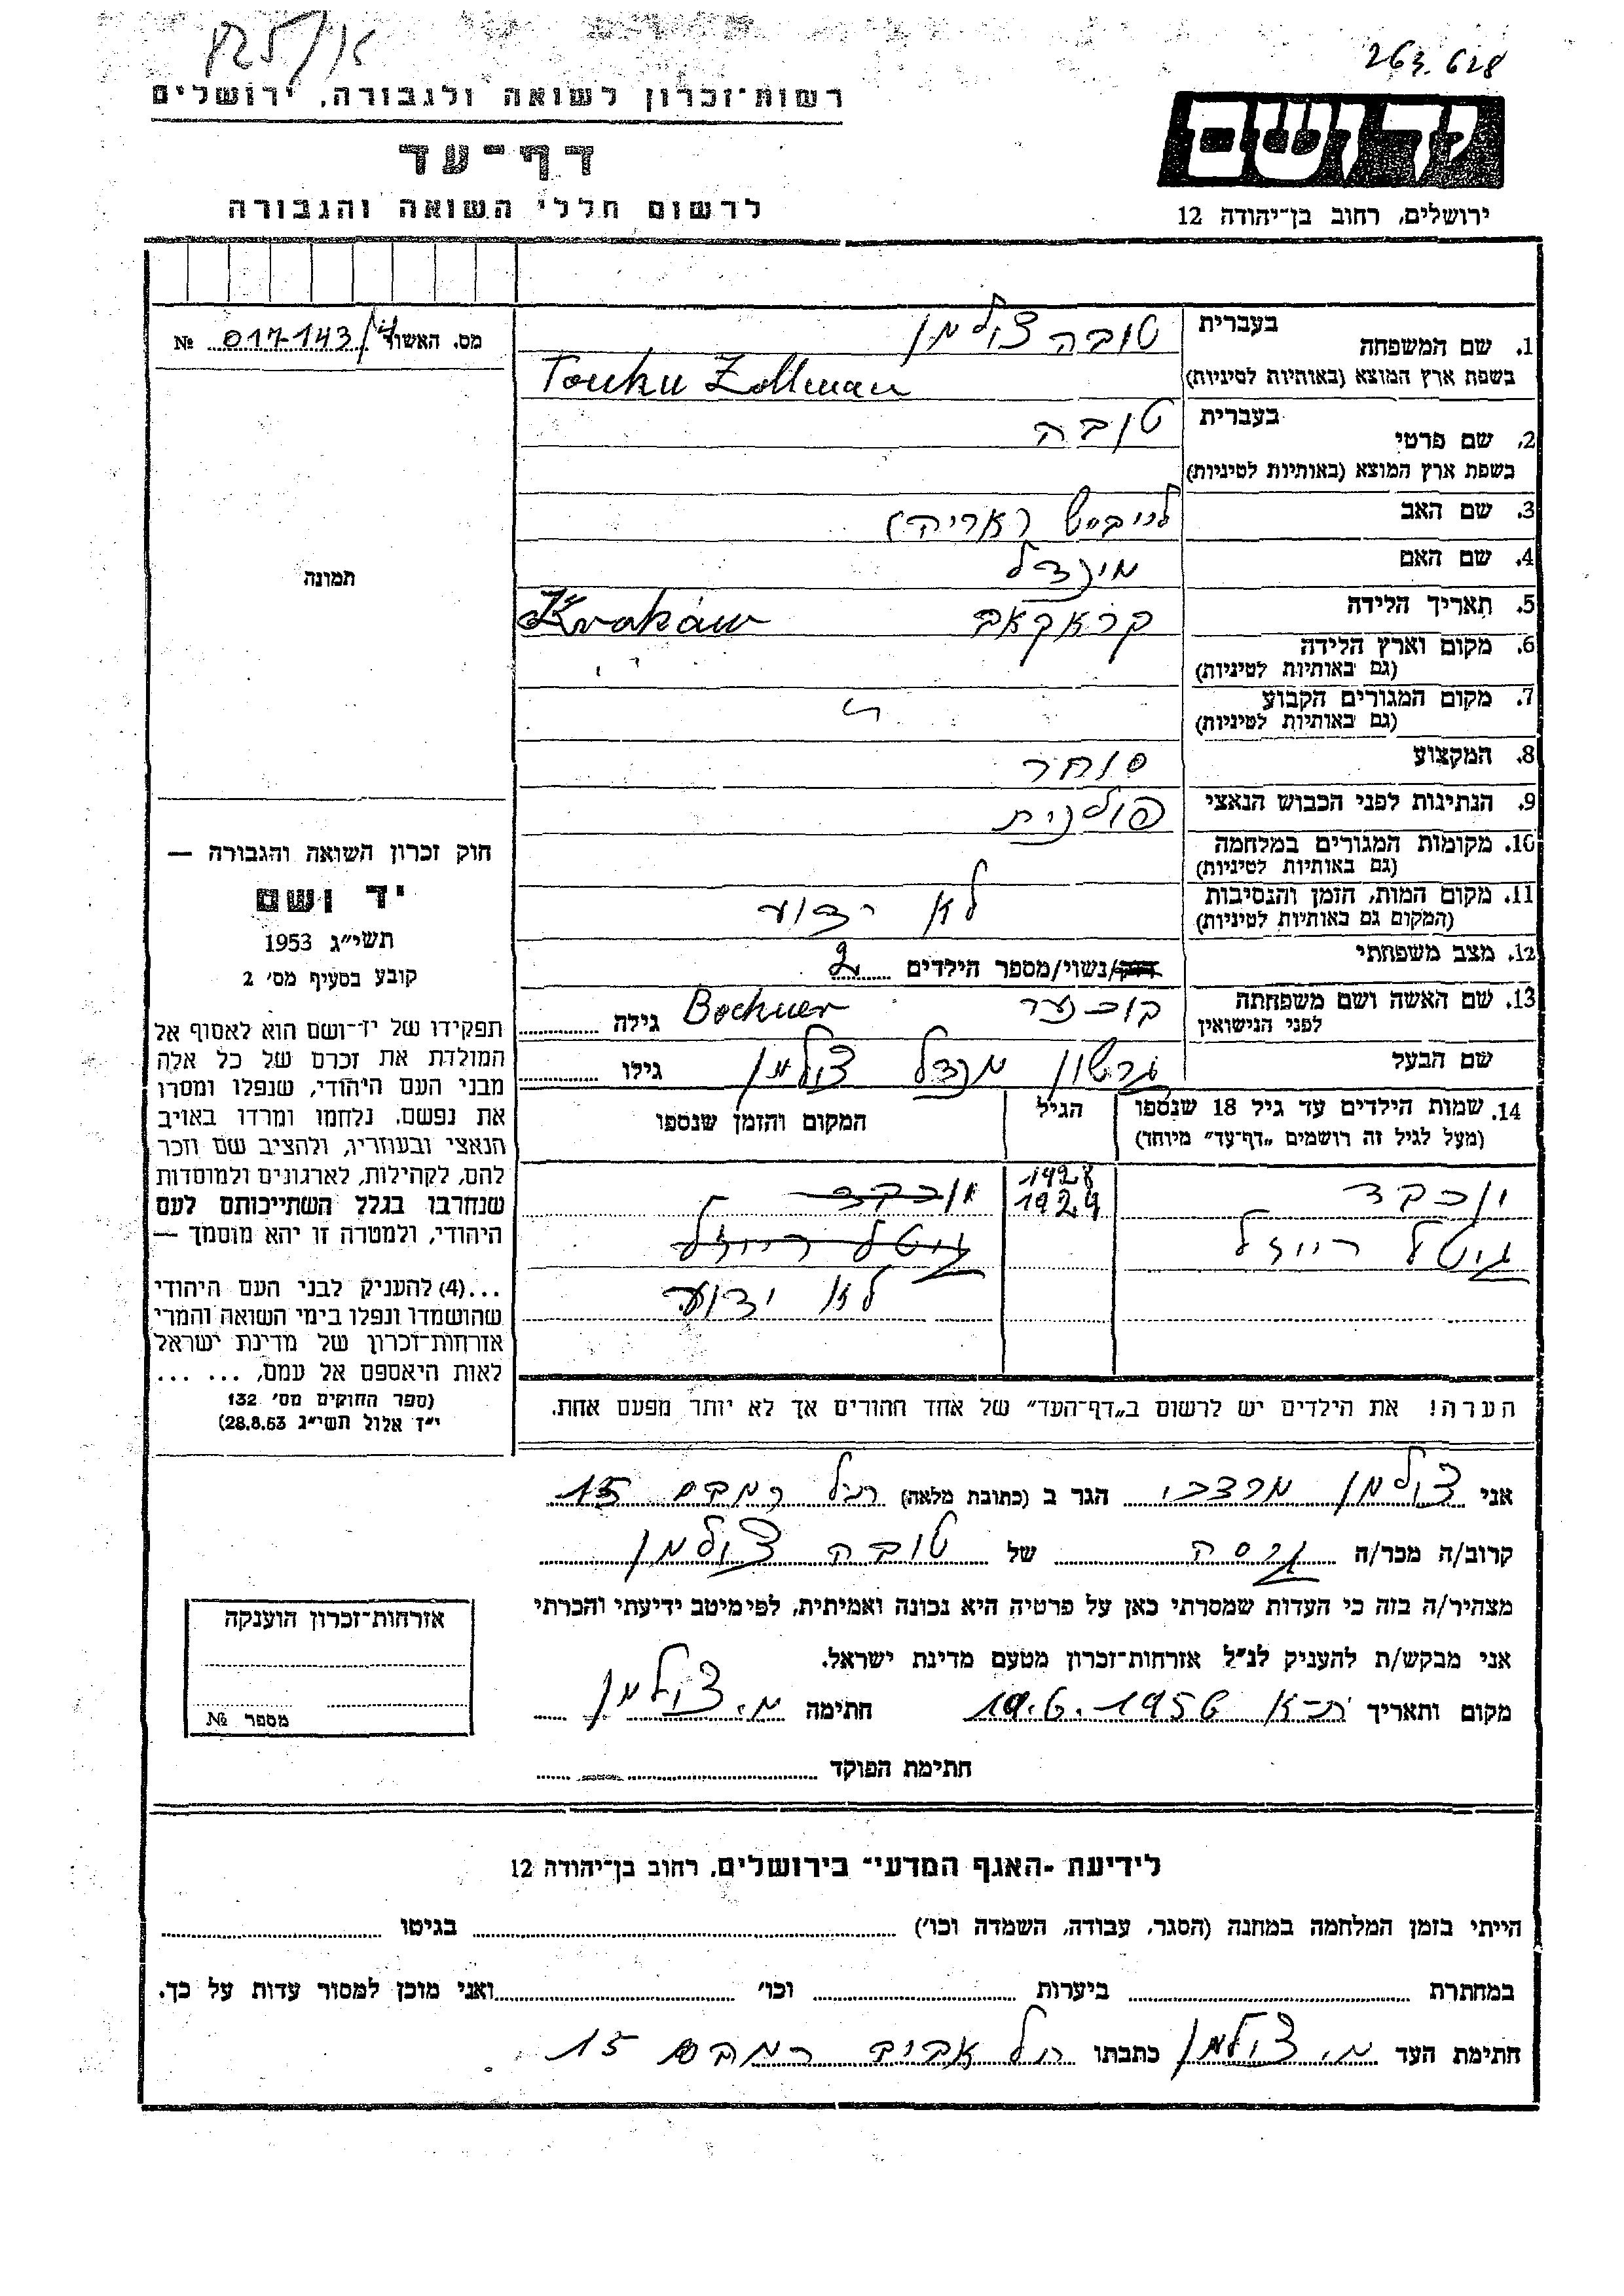 263.628
רשות־זכרון לשואה ולגבורה, ירושלים
יד ושם
דף־עד
ירושלים, רחוב בן־יהודה 12
לרשום חללי השואה והגבורה
מס. האשור 017-143/4 №
תמונה
חוק זכרון השואה והגבורה —
יד ושם
תשי״ג 1953
קובע בסעיף מס׳ 2
תפקידו של יד־ושם הוא לאסוף אל
המולדת את זכרם של כל אלה
מבני העם היהודי, שנפלו ומסרו
את נפשם, נלחמו ומרדו באויב
הנאצי ובעוזריו, ולהציב שם וזכר
להם, לקהילות, לארגונים ולמוסדות
שנחרבו בגלל השתייכותם לעם
היהודי, ולמטרה זו יהא מוסמך —
...(4) להעניק לבני העם היהודי
שהושמדו ונפלו בימי השואה והמרי
אזרחות־זכרון של מדינת ישראל
לאות היאספם אל עמם, ... ...
(ספר החוקים מס׳ 132
י״ז אלול תשי״ג 28.8.53)
בעברית טובה צולמן
1. שם המשפחה
בשפת ארץ המוצא (באותיות לטיניות) Zollman
בעברית טובה
2. שם פרטי
בשפת ארץ המוצא (באותיות לטיניות)
3. שם האב לייבוש (אריה)
4. שם האם מינדל
5. תאריך הלידה קראקאב Krakáw
6. מקום וארץ הלידה
(גם באותיות לטיניות) "
7. מקום המגורים הקבוע
(גם באותיות לטיניות)
8. המקצוע סוחר
9. הנתינות לפני הכבוש הנאצי פולנית
10. מקומות המגורים במלחמה
(גם באותיות לטיניות)
11. מקום המות, הזמן והנסיבות לא ידוע
(המקום גם באותיות לטיניות)
12. מצב משפחתי רוק/נשוי/מספר הילדים 2
13. שם האשה ושם משפחתה בוכנער Bochner גילה
לפני הנישואין
שם הבעל גרשון מנדל צולמן גילו
14. שמות הילדים עד גיל 18 שנספו הגיל המקום והזמן שנספו
(מעל לגיל זה רושמים „דף־עד״ מיוחד)
יוכבד 1928 יוכבד
גיטל רייזל 1924 גיטל רייזל
לא ידוע
הערה! את הילדים יש לרשום ב„דף־העד״ של אחד ההורים אך לא יותר מפעם אחת.
אני צולמן מרדכי הגר ב (כתובת מלאה) רמבם 15
קרוב/ה מכר/ה גיסה של טובה צולמן
מצהיר/ה בזה כי העדות שמסרתי כאן על פרטיה היא נכונה ואמיתית, לפי מיטב ידיעתי והכרתי
אני מבקש/ת להעניק לנ״ל אזרחות־זכרון מטעם מדינת ישראל.
מקום ותאריך ת־א 19.6.1956 חתימה מ. צולמן
חתימת הפוקד
אזרחות־זכרון הוענקה
מספר №
לידיעת ״האגף המדעי״ בירושלים, רחוב בן־יהודה 12
הייתי בזמן המלחמה במחנה (הסגר, עבודה, השמדה וכו׳) בגיטו
במחתרת ביערות וכו׳ ואני מוכן למסור עדות על כך.
חתימת העד מ. צולמן כתבתו תל אביב רמבם 15